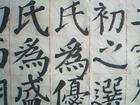 初之選
氏為優
氏為盛